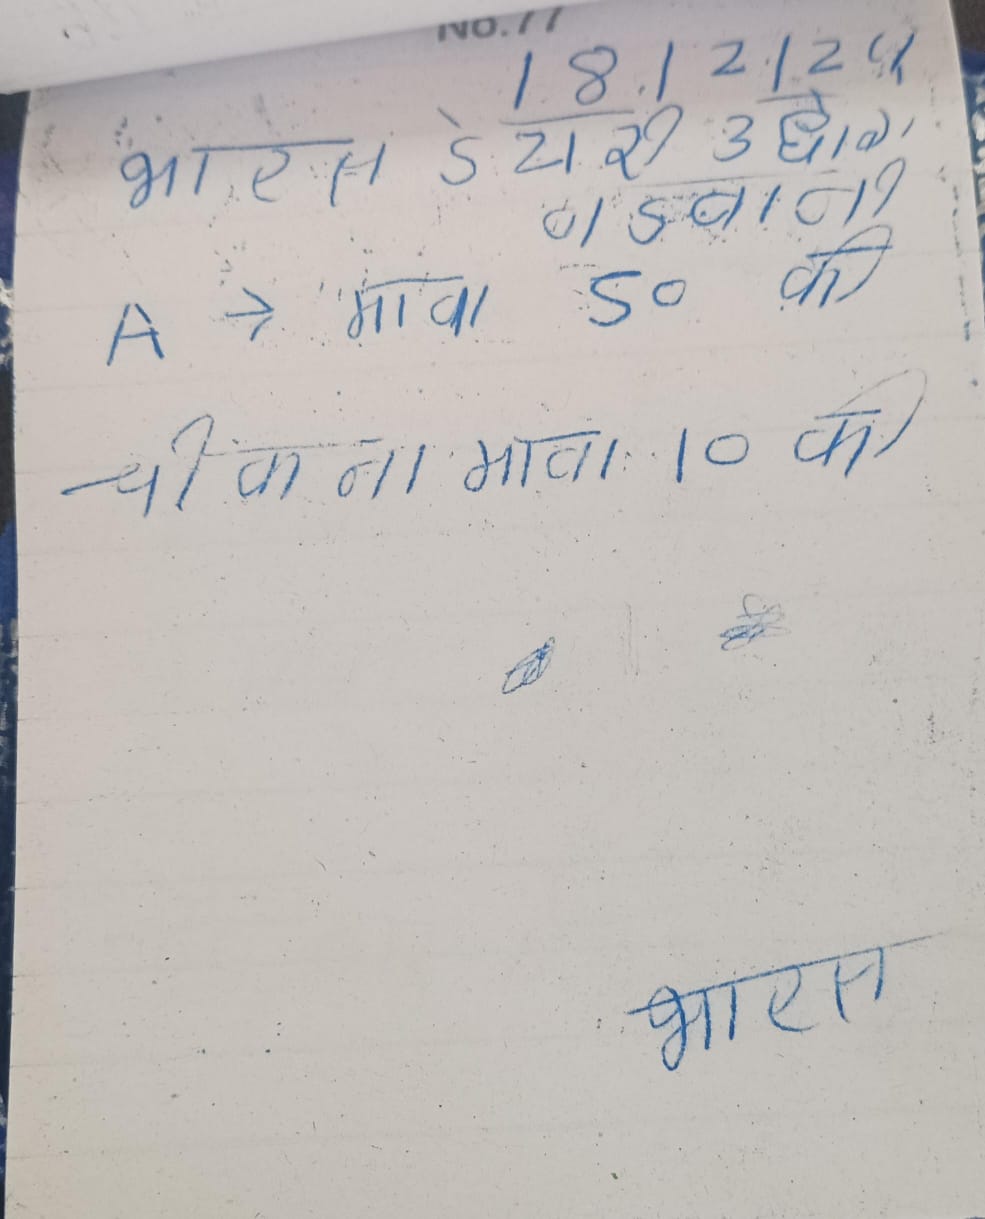 No.77
18.12.24
भारत डेयारी उद्योग
बडवानी
A → मावा 50 की
चीकना मावा 10 की
भारत